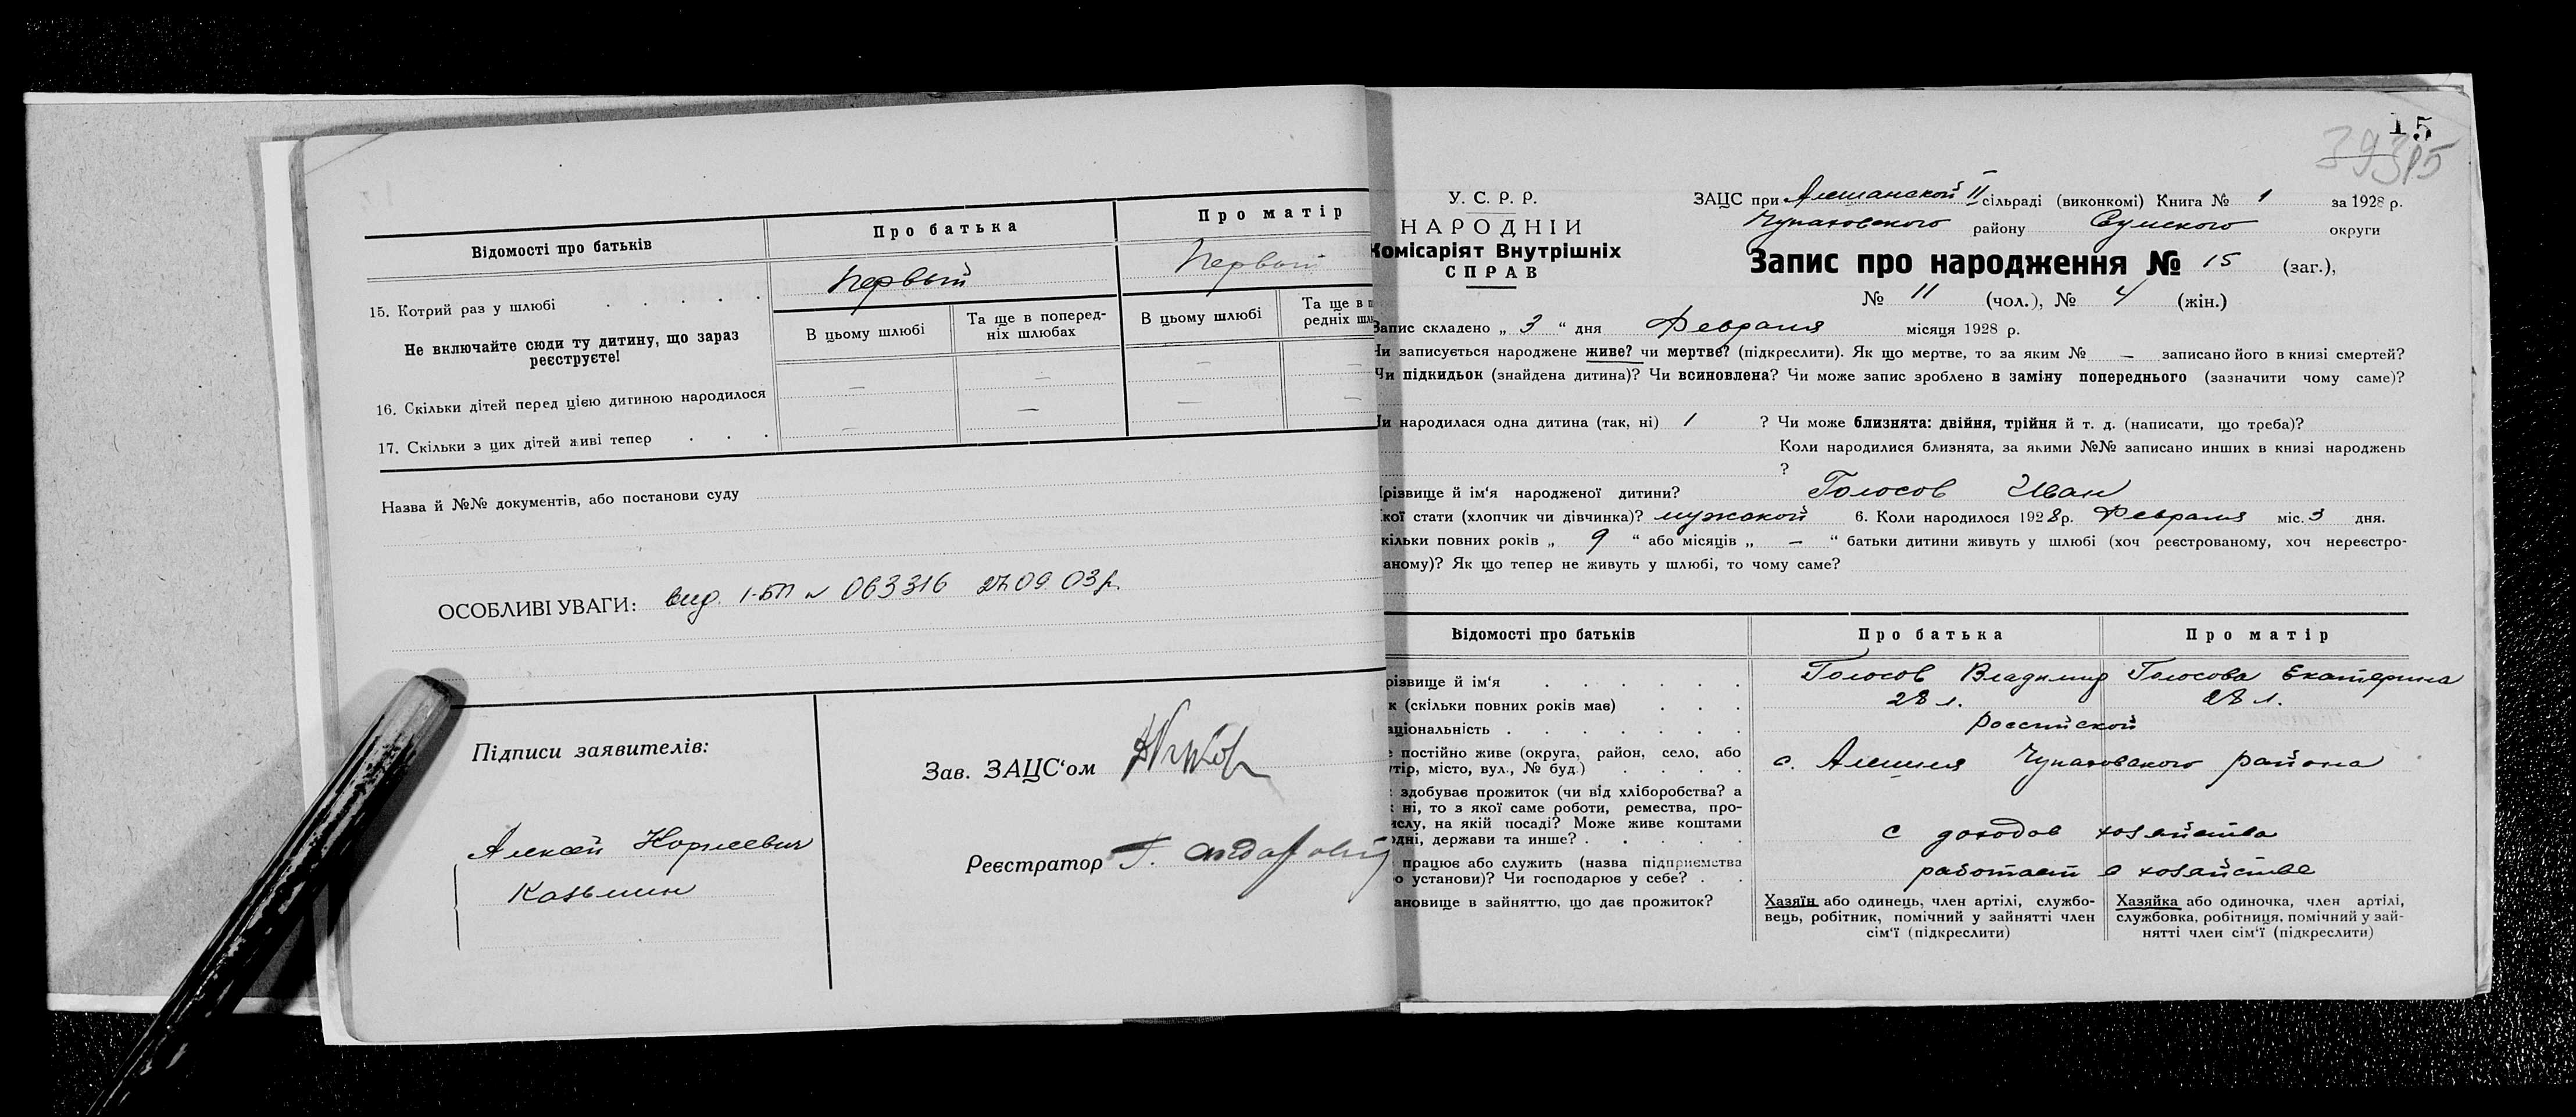 Відомості про батьків
Про батька
Про матір
15. Котрий раз у шлюбі
Первый
Первый
Не включайте сюди ту дитину, що зараз
реєструєте!
В цьому шлюбі
Та ще в поперед-
ніх шлюбах
В цьому шлюбі
Та ще в п
редніх шл
16. Скільки дітей перед цією дитиною народилося
— — — —
17. Скільки з цих дітей живі тепер
— — — —
Назва й №№ документів, або постанови суду
ОСОБЛИВІ УВАГИ: вид. I-БП № 063316 27.09.03р.
Підписи заявителів:
Алексей
Казьмин
Зав. ЗАЦС'ом
Реєстратор
15
393 15
У. С. Р. Р.
НАРОДНІЙ
Комісаріят Внутрішніх
СПРАВ
ЗАЦС при Алешанской II сільраді (виконкомі) Книга № 1 за 1928 р.
Чупаховского району Сумского округи
Запис про народження № 15 (заг.),
№ 11 (чол.), № 4 (жін.)
Запис складено „ 3 “ дня Февраля місяця 1928 р.
Чи записується народжене живе? чи мертве? (підкреслити). Як що мертве, то за яким № — записано його в книзі смертей?
Чи підкидьок (знайдена дитина)? Чи всиновлена? Чи може запис зроблено в заміну попереднього (зазначити чому саме)?
Чи народилася одна дитина (так, ні) 1 ? Чи може близнята: двійня, трійня й т. д. (написати, що треба)?
Коли народилися близнята, за якими №№ записано инших в книзі народжень
?
різвище й ім'я народженої дитини? Голосов Иван
кої стати (хлопчик чи дівчинка)? мужской 6. Коли народилося 1928р. Февраля міс. 3 дня.
кільки повних років „ 9 “ або місяців „ — “ батьки дитини живуть у шлюбі (хоч реєстрованому, хоч нереєстро-
аному)? Як що тепер не живуть у шлюбі, то чому саме?
Відомості про батьків
Про батька
Про матір
різвище й ім'я
Голосов Владимир
Голосова Екатерина
к (скільки повних років має)
28 л.
28 л.
аціональність
российской
е постійно живе (округа, район, село, або
утір, місто, вул., № буд.)
с. Алешня Чупаховского района
здобуває прожиток (чи від хліборобства? а
ні, то з якої саме роботи, ремества, про-
ислу, на якій посаді? Може живе коштами
одні, держави та инше?
с доходов хозяйства
працює або служить (назва підприємства
о установи)? Чи господарює у себе?
работает в хозяйстве
ановище в зайняттю, що дає прожиток?
Хазяїн або одинець, член артілі, службо-
вець, робітник, помічний у зайнятті член
сім'ї (підкреслити)
Хазяйка або одиночка, член артілі,
службовка, робітниця, помічний у зай-
нятті член сім'ї (підкреслити)